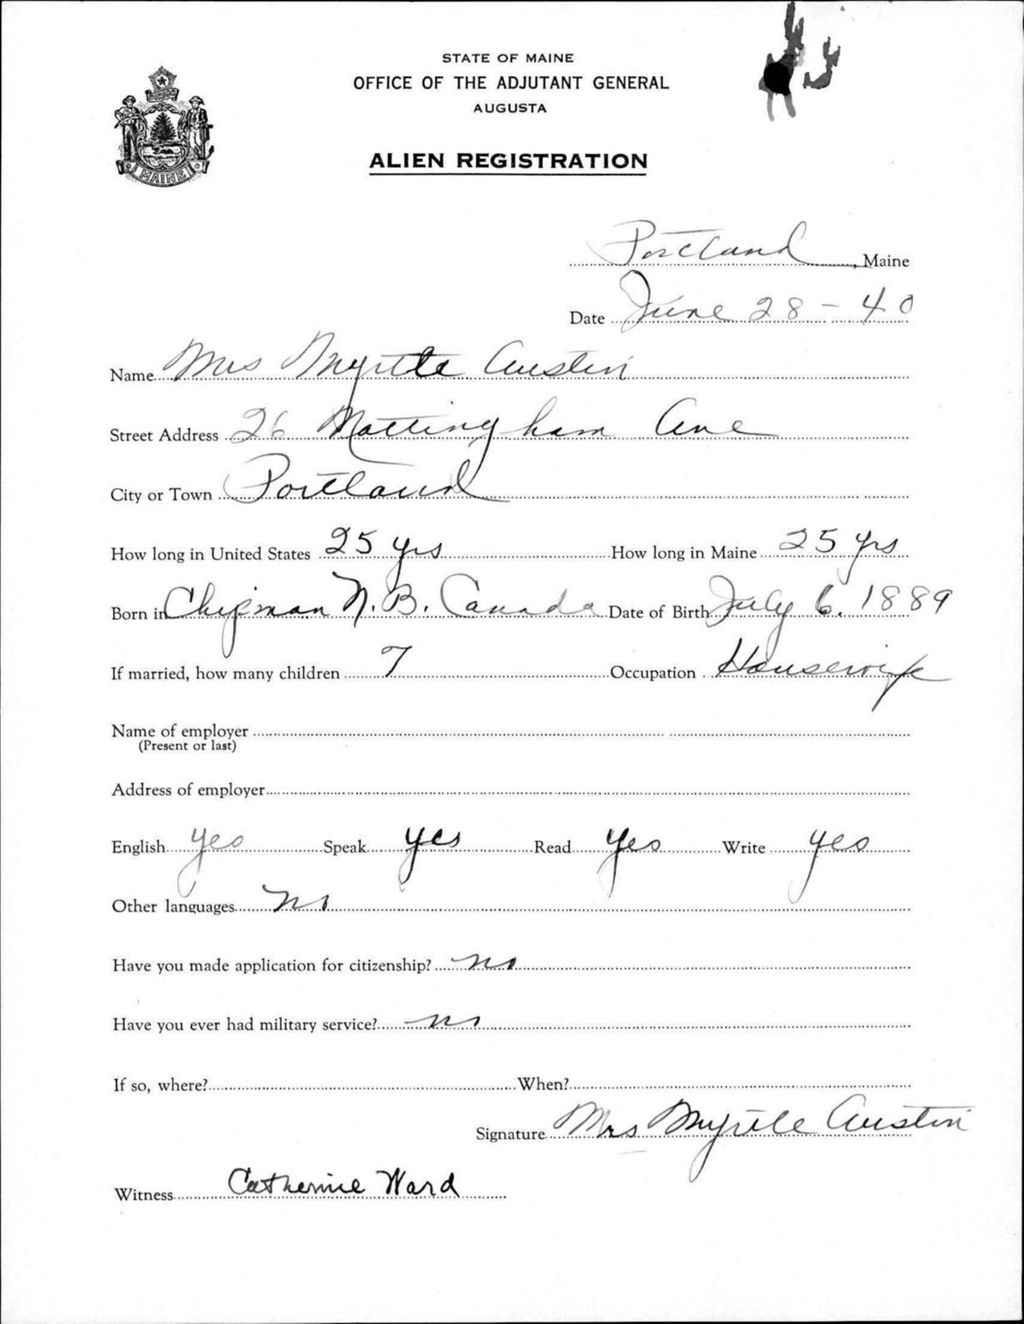 STATE OF MAINE
OFFICE OF THE ADJUTANT GENERAL
AUGUSTA
ALIEN REGISTRATION
MAINE
Portland, Maine
Date June 28-40
Name Mrs Myrtle Austin
Street Address 26 Mattingham Ave
City or Town Portland
How long in United States 25 yrs How long in Maine 25 yrs
Born in Chipman N.B. Canada Date of Birth July 6. 1889
If married, how many children 7 Occupation Housewife
Name of employer
(Present or last)
Address of employer
English yes Speak yes Read yes Write yes
Other languages no
Have you made application for citizenship? no
Have you ever had military service? no
If so, where? When?
Signature Mrs Myrtle Austin
Witness Catherine Ward